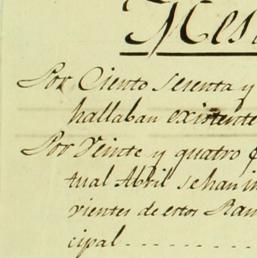 Mes
Por Ciento setenta y
hallaban existente
Por Veinte y quatro
tual Abril se han in
vientes de estos Ram
cipal